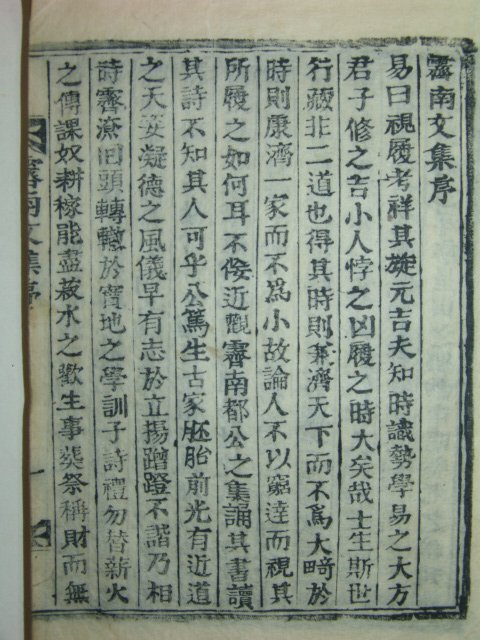 霽南文集序
易曰視履考祥其旋元吉夫知時識勢學易之大方
君子修之吉小人悖之凶履之時大矣哉士生斯世
行藏非二道也得其時則兼濟天下而不爲大畸於
時則康濟一家而不爲小故論人不以窮達而視其
所履之如何耳不佞近觀霽南都公之集誦其書讀
其詩不知其人可乎公篤生古家胚胎前光有近道
之天姿凝德之風儀早有志於立揚蹭蹬不諧乃相
時霽潦回頭轉轍於實地之學訓子詩禮勿替薪火
之傳課奴耕稼能盡菽水之歡生事葬祭稱財而無
霽南文集序
一